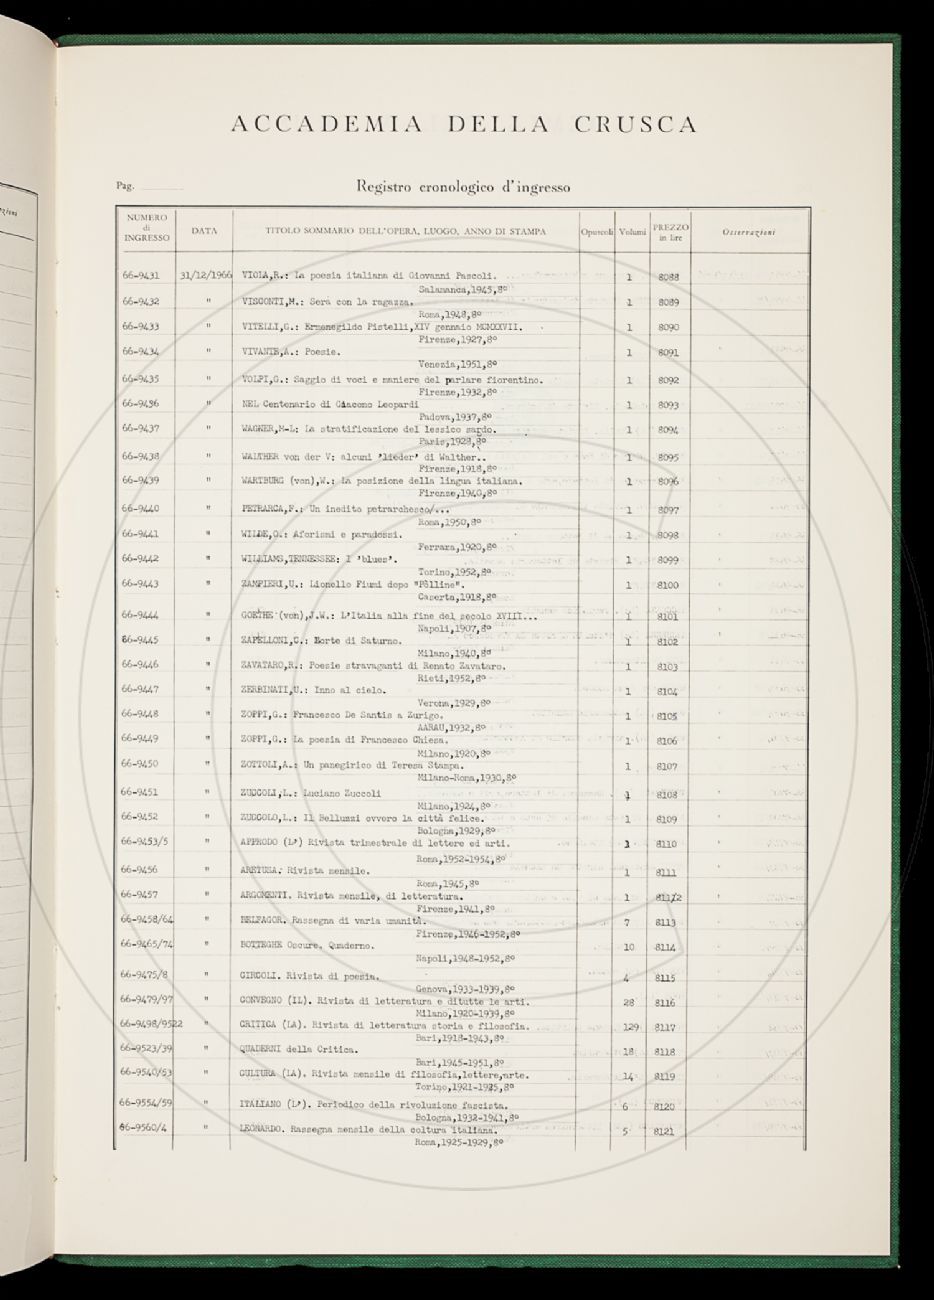 ACCADEMIA DELLA CRUSCA
Pag.
Registro cronologico d'ingresso
NUMERO di INGRESSO DATA TITOLO SOMMARIO DELL'OPERA, LUOGO, ANNO DI STAMPA Opuscoli Volumi PREZZO in lire Osservazioni
66-9431 31/12/1966 VIOLA,R.: La poesia italiana di Giovanni Pascoli. 1 8088
Salamanca,1945,8º
66-9432 " VISCONTI,M.: Sera con la ragazza. 1 8089
Roma,1948,8º
66-9433 " VITELLI,G.: Ermenegildo Pistelli,XIV gennaio MCMXXVII. 1 8090
Firenze,1927,8º
66-9434 " VIVANTE,A.: Poesie. 1 8091
Venezia,1951,8º
66-9435 " VOLPI,G.: Saggio di voci e maniere del parlare fiorentino. 1 8092
Firenze,1932,8º
66-9436 " NEL Centenario di Giacomo Leopardi 1 8093
Padova,1937,8º
66-9437 " WAGNER,M-L: La stratificazione del lessico sardo. 1 8094
Paris,1928,8º
66-9438 " WALTHER von der V: alcuni 'lieder' di Walther.. 1 8095
Firenze,1918,8º
66-9439 " WARTBURG (von),W.: La posizione della lingua italiana. 1 8096
Firenze,1940,8º
66-9440 " PETRARCA,F.: Un inedito petrarchesco/... 1 8097
Roma,1950,8º
66-9441 " WILDE,O.: Aforismi e paradossi. 1 8098
Ferrara,1920,8º
66-9442 " WILLIAMS,TENNESSEE: I 'blues'. 1 8099
Torino,1952,8º
66-9443 " ZAMPIERI,U.: Lionello Fiumi dopo "Pòlline". 1 8100
Caserta,1918,8º
66-9444 " GOETHE (von),J.W.: L'Italia alla fine del secolo XVIII... 1 8101
Napoli,1907,8º
66-9445 " ZAPELLONI,C.: Morte di Saturno. 1 8102
Milano,1940,8º
66-9446 " ZAVATARO,R.: Poesie stravaganti di Renato Zavataro. 1 8103
Rieti,1952,8º
66-9447 " ZERBINATI,U.: Inno al cielo. 1 8104
Verona,1929,8º
66-9448 " ZOPPI,G.: Francesco De Santis a Zurigo. 1 8105
AARAU,1932,8º
66-9449 " ZOPPI,G.: La poesia di Francesco Chiesa. 1 8106
Milano,1920,8º
66-9450 " ZOTTOLI,A.: Un panegirico di Teresa Stampa. 1 8107
Milano-Roma,1930,8º
66-9451 " ZUCCOLI,L.: Luciano Zuccoli 1 8108
Milano,1924,8º
66-9452 " ZUCCOLO,L.: Il Belluzzi ovvero la città felice. 1 8109
Bologna,1929,8º
66-9453/5 " APPRODO (L') Rivista trimestrale di lettere ed arti. 3 8110
Roma,1952-1954,8º
66-9456 " ARETUSA. Rivista mensile. 1 8111
Roma,1945,8º
66-9457 " ARGOMENTI. Rivista mensile, di letteratura. 1 8112
Firenze,1941,8º
66-9458/64 " BELFAGOR. Rassegna di varia umanità. 7 8113
Firenze,1946-1952,8º
66-9465/74 " BOTTEGHE Oscure. Quaderno. 10 8114
Napoli,1948-1952,8º
66-9475/8 " CIRCOLI. Rivista di poesia. 4 8115
Genova,1933-1939,8º
66-9479/97 " CONVEGNO (IL). Rivista di letteratura e ditutte le arti. 28 8116
Milano,1920-1939,8º
66-9498/9522 " CRITICA (LA). Rivista di letteratura storia e filosofia. 129 8117
Bari,1918-1943,8º
66-9523/39 " QUADERNI della Critica. 18 8118
Bari,1945-1951,8º
66-9540/53 " CULTURA (LA). Rivista mensile di filosofia,lettere,arte. 14 8119
Torino,1921-1935,8º
66-9554/59 " ITALIANO (L'). Periodico della rivoluzione fascista. 6 8120
Bologna,1932-1941,8º
66-9560/4 " LEONARDO. Rassegna mensile della coltura italiana. 5 8121
Roma,1925-1929,8º